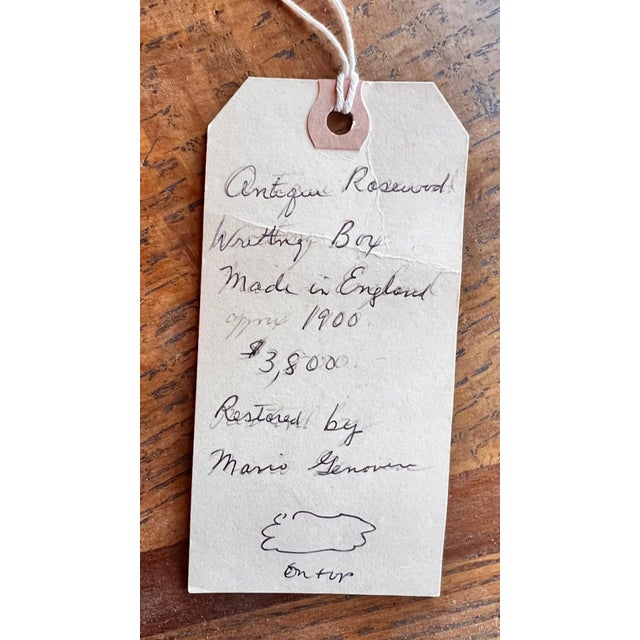 Antique Rosewood
Writtng Box
Made in England
1900
$3,800
Restored by
Mario Genovese
On top